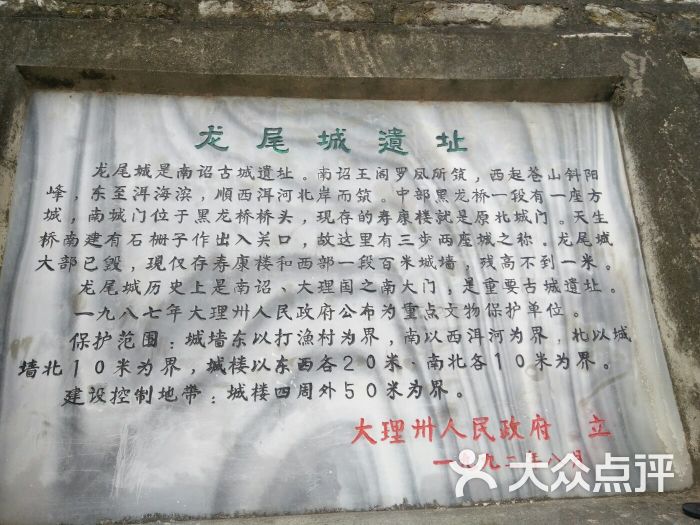 龙尾城遺址
龙尾城是南诏古城遗址。南诏王阁罗凤所筑，西起苍山斜阳
峰，东至洱海滨，順西洱河北岸而筑。中部黑龙桥一段有一座方
城，南城门位于黑龙桥桥头，现存的寿康楼就是原北城门。天生
桥南建有石栅子作出入关口，故这里有三步两座城之称。龙尾城
大部已毁，現仅存寿康楼和西部一段百米城墙，残高不到一米。
龙尾城历史上是南诏、大理国之南大门，是重要古城遗址。
一九八七年大理州人民政府公布为重点文物保护单位。
保护范围：城墙东以打漁村为界，南以西洱河为界，北以城
墙北10米为界，城楼以东西各20米·南北各10米为界。
建设控制地带：城楼四周外50米为界。
大理州人民政府 立
一九九二年八月
大众点评